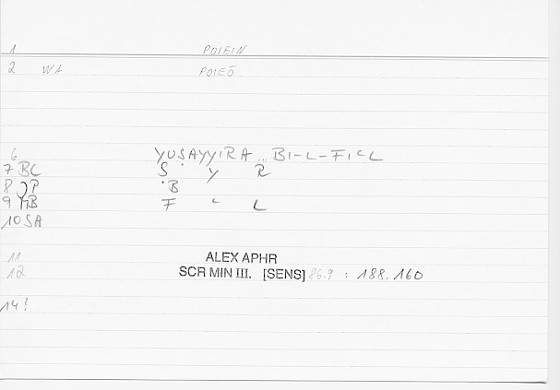 1 POIEIN
2 WA POIEŌ
6 YUṢAYYIRA .. BI-L-FIʿL
7 BC Ṣ Y R
8 P B
9 B F ʿ L
10 SA
11 ALEX APHR
12 SCR MIN III. [SENS] 86.9 : 188.160
14!